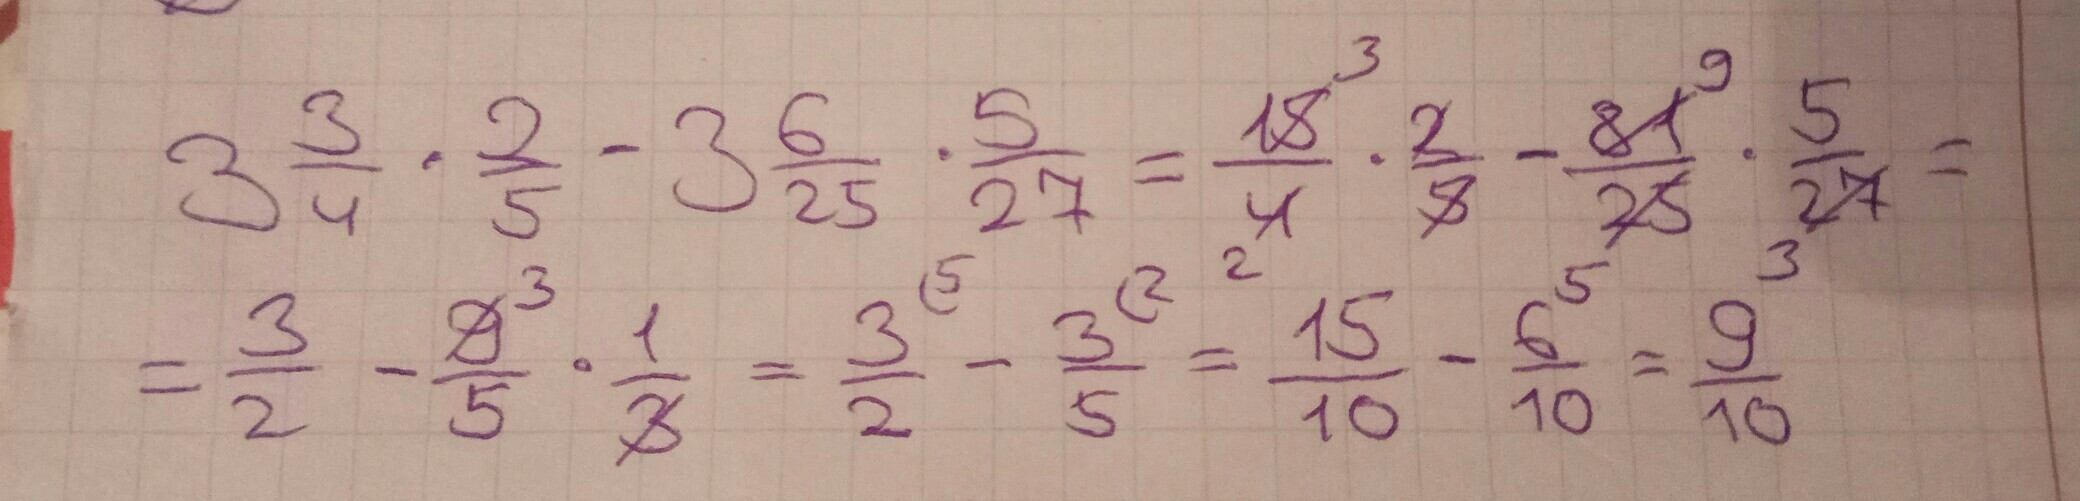 3 3/4 · 2/5 - 3 6/25 · 5/27 = 15/4 · 2/5 - 81/25 · 5/27 =
= 3/2 - 9/5 · 1/3 = 3/2 - 3/5 = 15/10 - 6/10 = 9/10